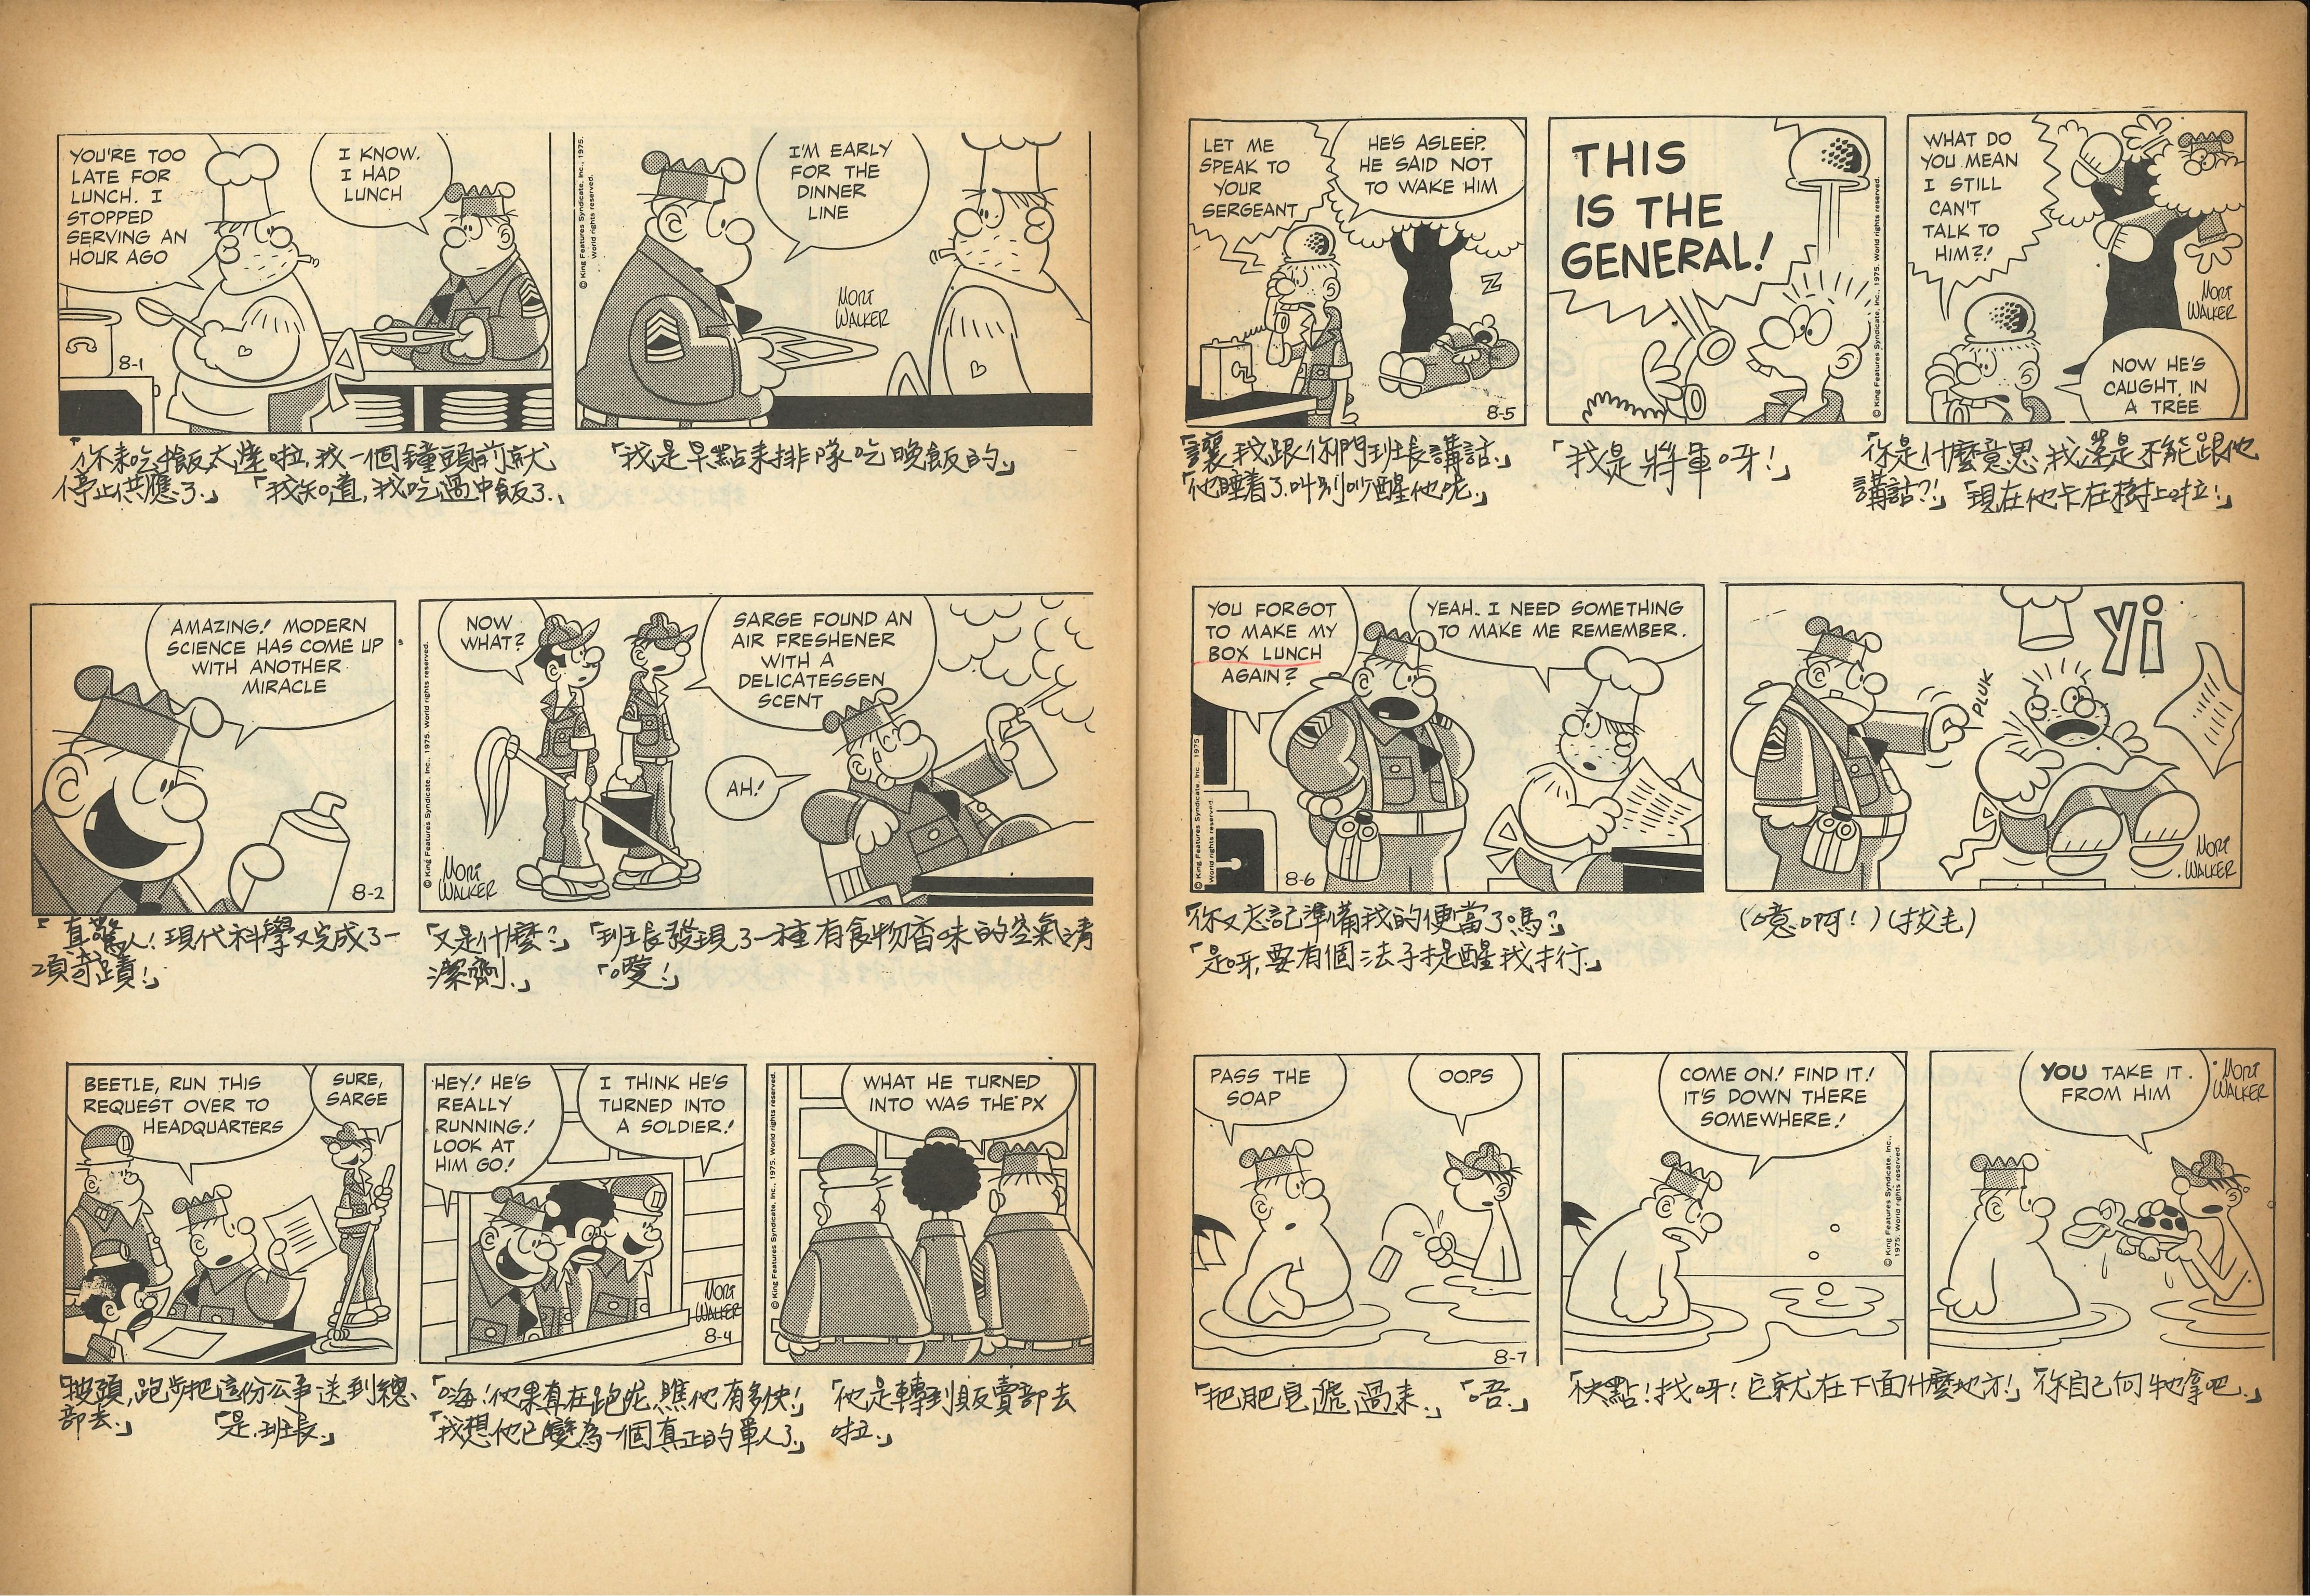 YOU'RE TOO
LATE FOR
LUNCH. I
STOPPED
SERVING AN
HOUR AGO
I KNOW.
I HAD
LUNCH
8-1
© King Features Syndicate, Inc., 1975.
World rights reserved.
I'M EARLY
FOR THE
DINNER
LINE
MORT
WALKER
「你來吃中飯太遲啦，我一個鐘頭前就
停止供應了。」「我知道，我吃過中飯了。」
「我是早點來排隊吃晚飯的。」
AMAZING! MODERN
SCIENCE HAS COME UP
WITH ANOTHER
MIRACLE
8-2
© King Features Syndicate, Inc., 1975. World rights reserved.
NOW
WHAT?
SARGE FOUND AN
AIR FRESHENER
WITH A
DELICATESSEN
SCENT
AH!
MORT
WALKER
「真驚人！現代科學又完成了一
項奇蹟！」
「又是什麼？」「班長發現了一種有食物香味的空氣清
潔劑。」「噯！」
BEETLE, RUN THIS
REQUEST OVER TO
HEADQUARTERS
SURE,
SARGE
HEY! HE'S
REALLY
RUNNING!
LOOK AT
HIM GO!
I THINK HE'S
TURNED INTO
A SOLDIER!
MORT
WALKER
8-4
© King Features Syndicate, Inc., 1975. World rights reserved.
WHAT HE TURNED
INTO WAS THE PX
「披頭，跑步把這份公事送到總
部去。」「是，班長。」
「嗨！他果真在跑呢，瞧他有多快！」
「我想他已變為一個真正的軍人了。」
「他是轉到販賣部去
啦。」
LET ME
SPEAK TO
YOUR
SERGEANT
HE'S ASLEEP.
HE SAID NOT
TO WAKE HIM
Z
8-5
THIS
IS THE
GENERAL!
© King Features Syndicate, Inc., 1975. World rights reserved.
WHAT DO
YOU MEAN
I STILL
CAN'T
TALK TO
HIM?!
MORT
WALKER
NOW HE'S
CAUGHT IN
A TREE
「讓我跟你們班長講話。」
「他睡着了，叫別吵醒他呢。」
「我是將軍呀！」
「你是什麼意思，我還是不能跟他
講話？！」「現在他卡在樹上啦！」
YOU FORGOT
TO MAKE MY
BOX LUNCH
AGAIN?
YEAH. I NEED SOMETHING
TO MAKE ME REMEMBER.
© King Features Syndicate, Inc., 1975
World rights reserved.
8-6
PLUK
Yi
MORT
WALKER
「你又忘記準備我的便當了嗎？」
「是呀，要有個法子提醒我才行。」
（噫啊！）（拔毛）
PASS THE
SOAP
OOPS
8-7
COME ON! FIND IT!
IT'S DOWN THERE
SOMEWHERE!
© King Features Syndicate, Inc.,
1975. World rights reserved.
YOU TAKE IT
FROM HIM
MORT
WALKER
「把肥皂遞過來。」「唔。」
「快點！找呀！它就在下面什麼地方！」
「你自己向牠拿吧。」